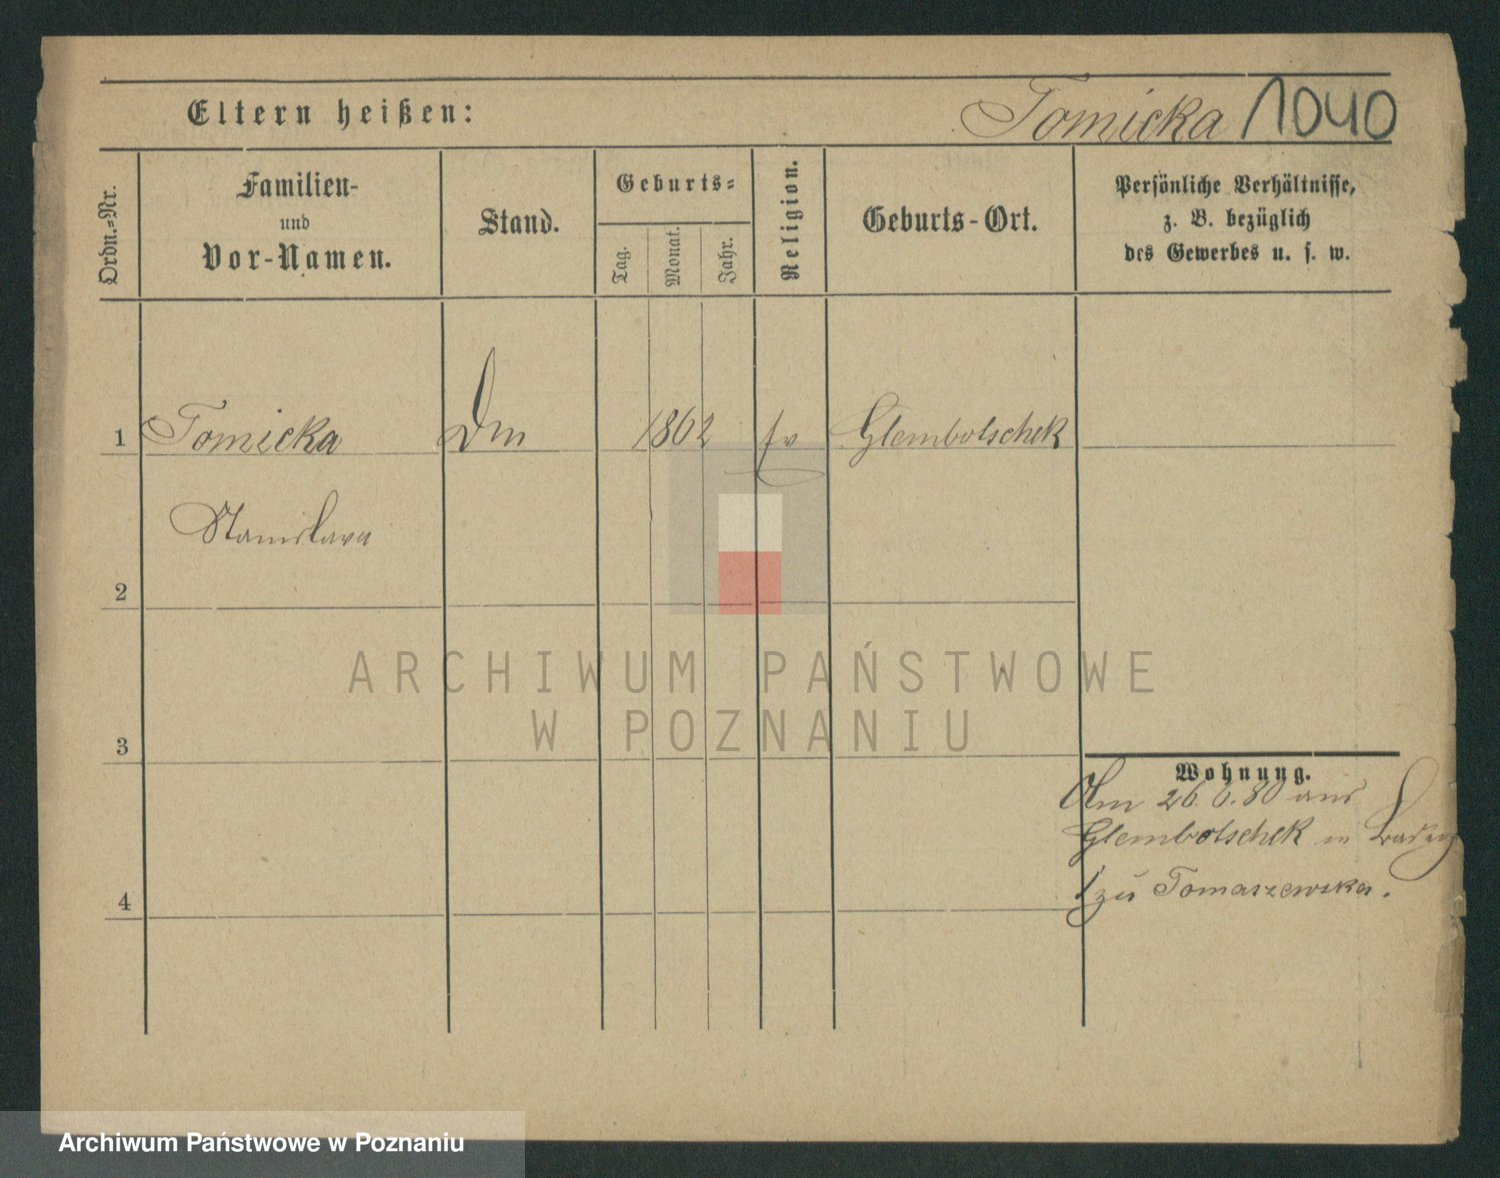 Eltern heißen: Tomicka 1040
Ordn.-Nr.
Familien-
und
Vor-Namen.
Stand.
Geburts-
Tag.
Monat.
Jahr.
Religion.
Geburts-Ort.
Persönliche Verhältnisse,
z. B. bezüglich
des Gewerbes u. s. w.
1 Tomicka 1862 Glembotschek
Stanislava
2
3
4
Wohnung.
Am 26.6.80 aus
Glembotschek in
zu Tomaszewska.
ARCHIWUM PAŃSTWOWE
W POZNANIU
Archiwum Państwowe w Poznaniu